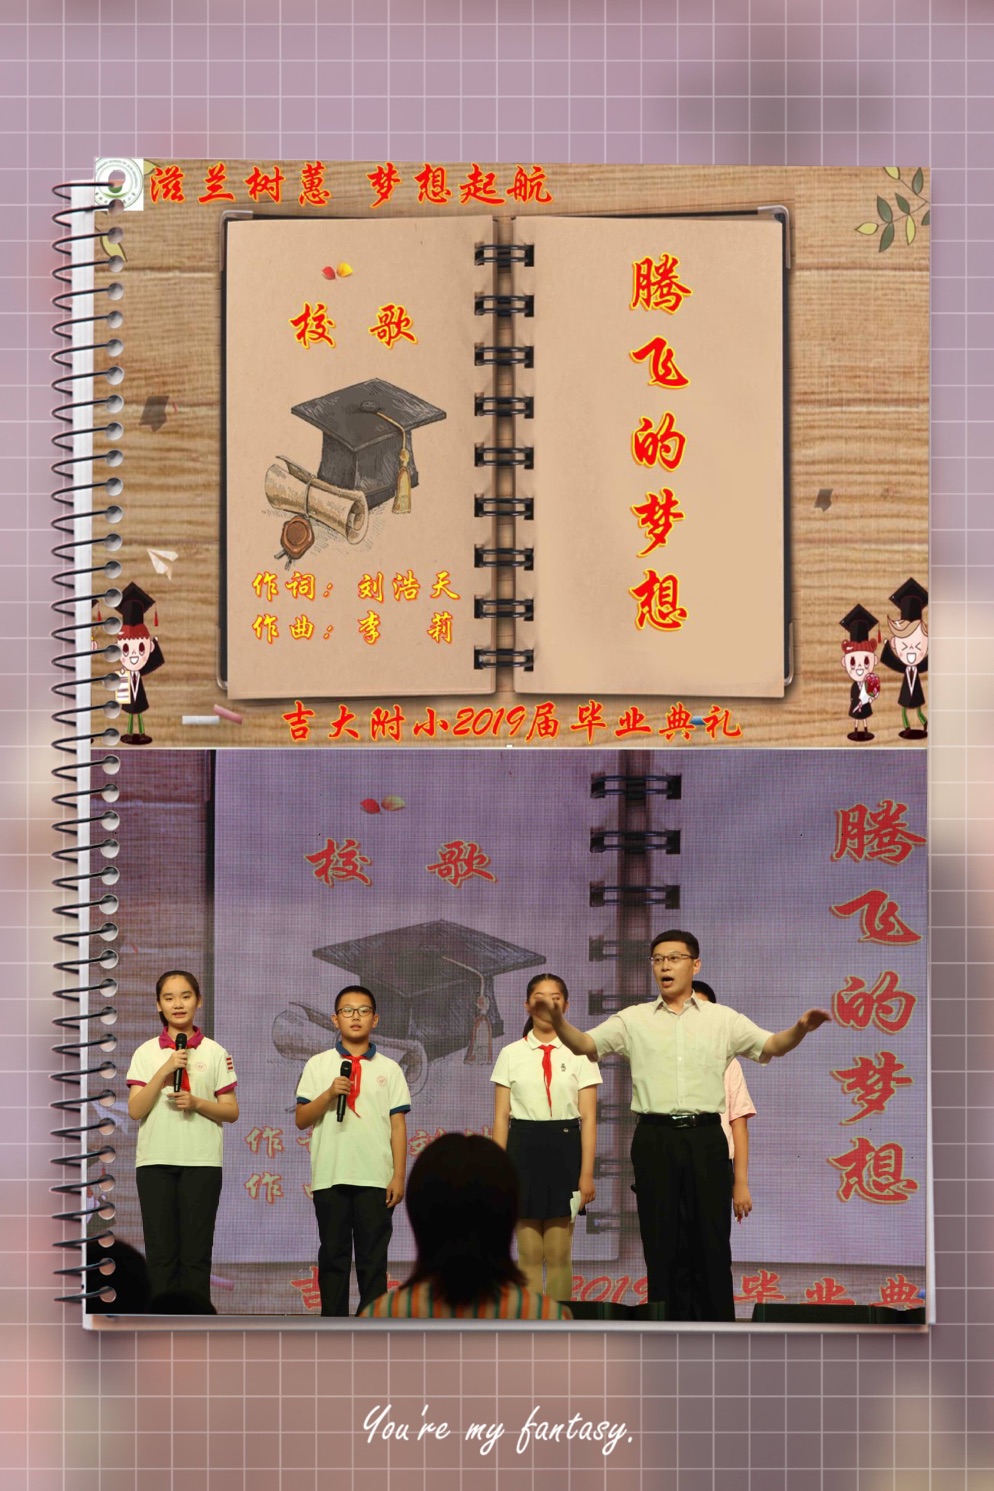 滋兰树蕙 梦想起航
校 歌
作词：刘浩天
作曲：李 莉
腾飞的梦想
吉大附小2019届毕业典礼
校 歌
作
作
腾飞的梦想
吉
2019
毕业典
You're my fantasy.